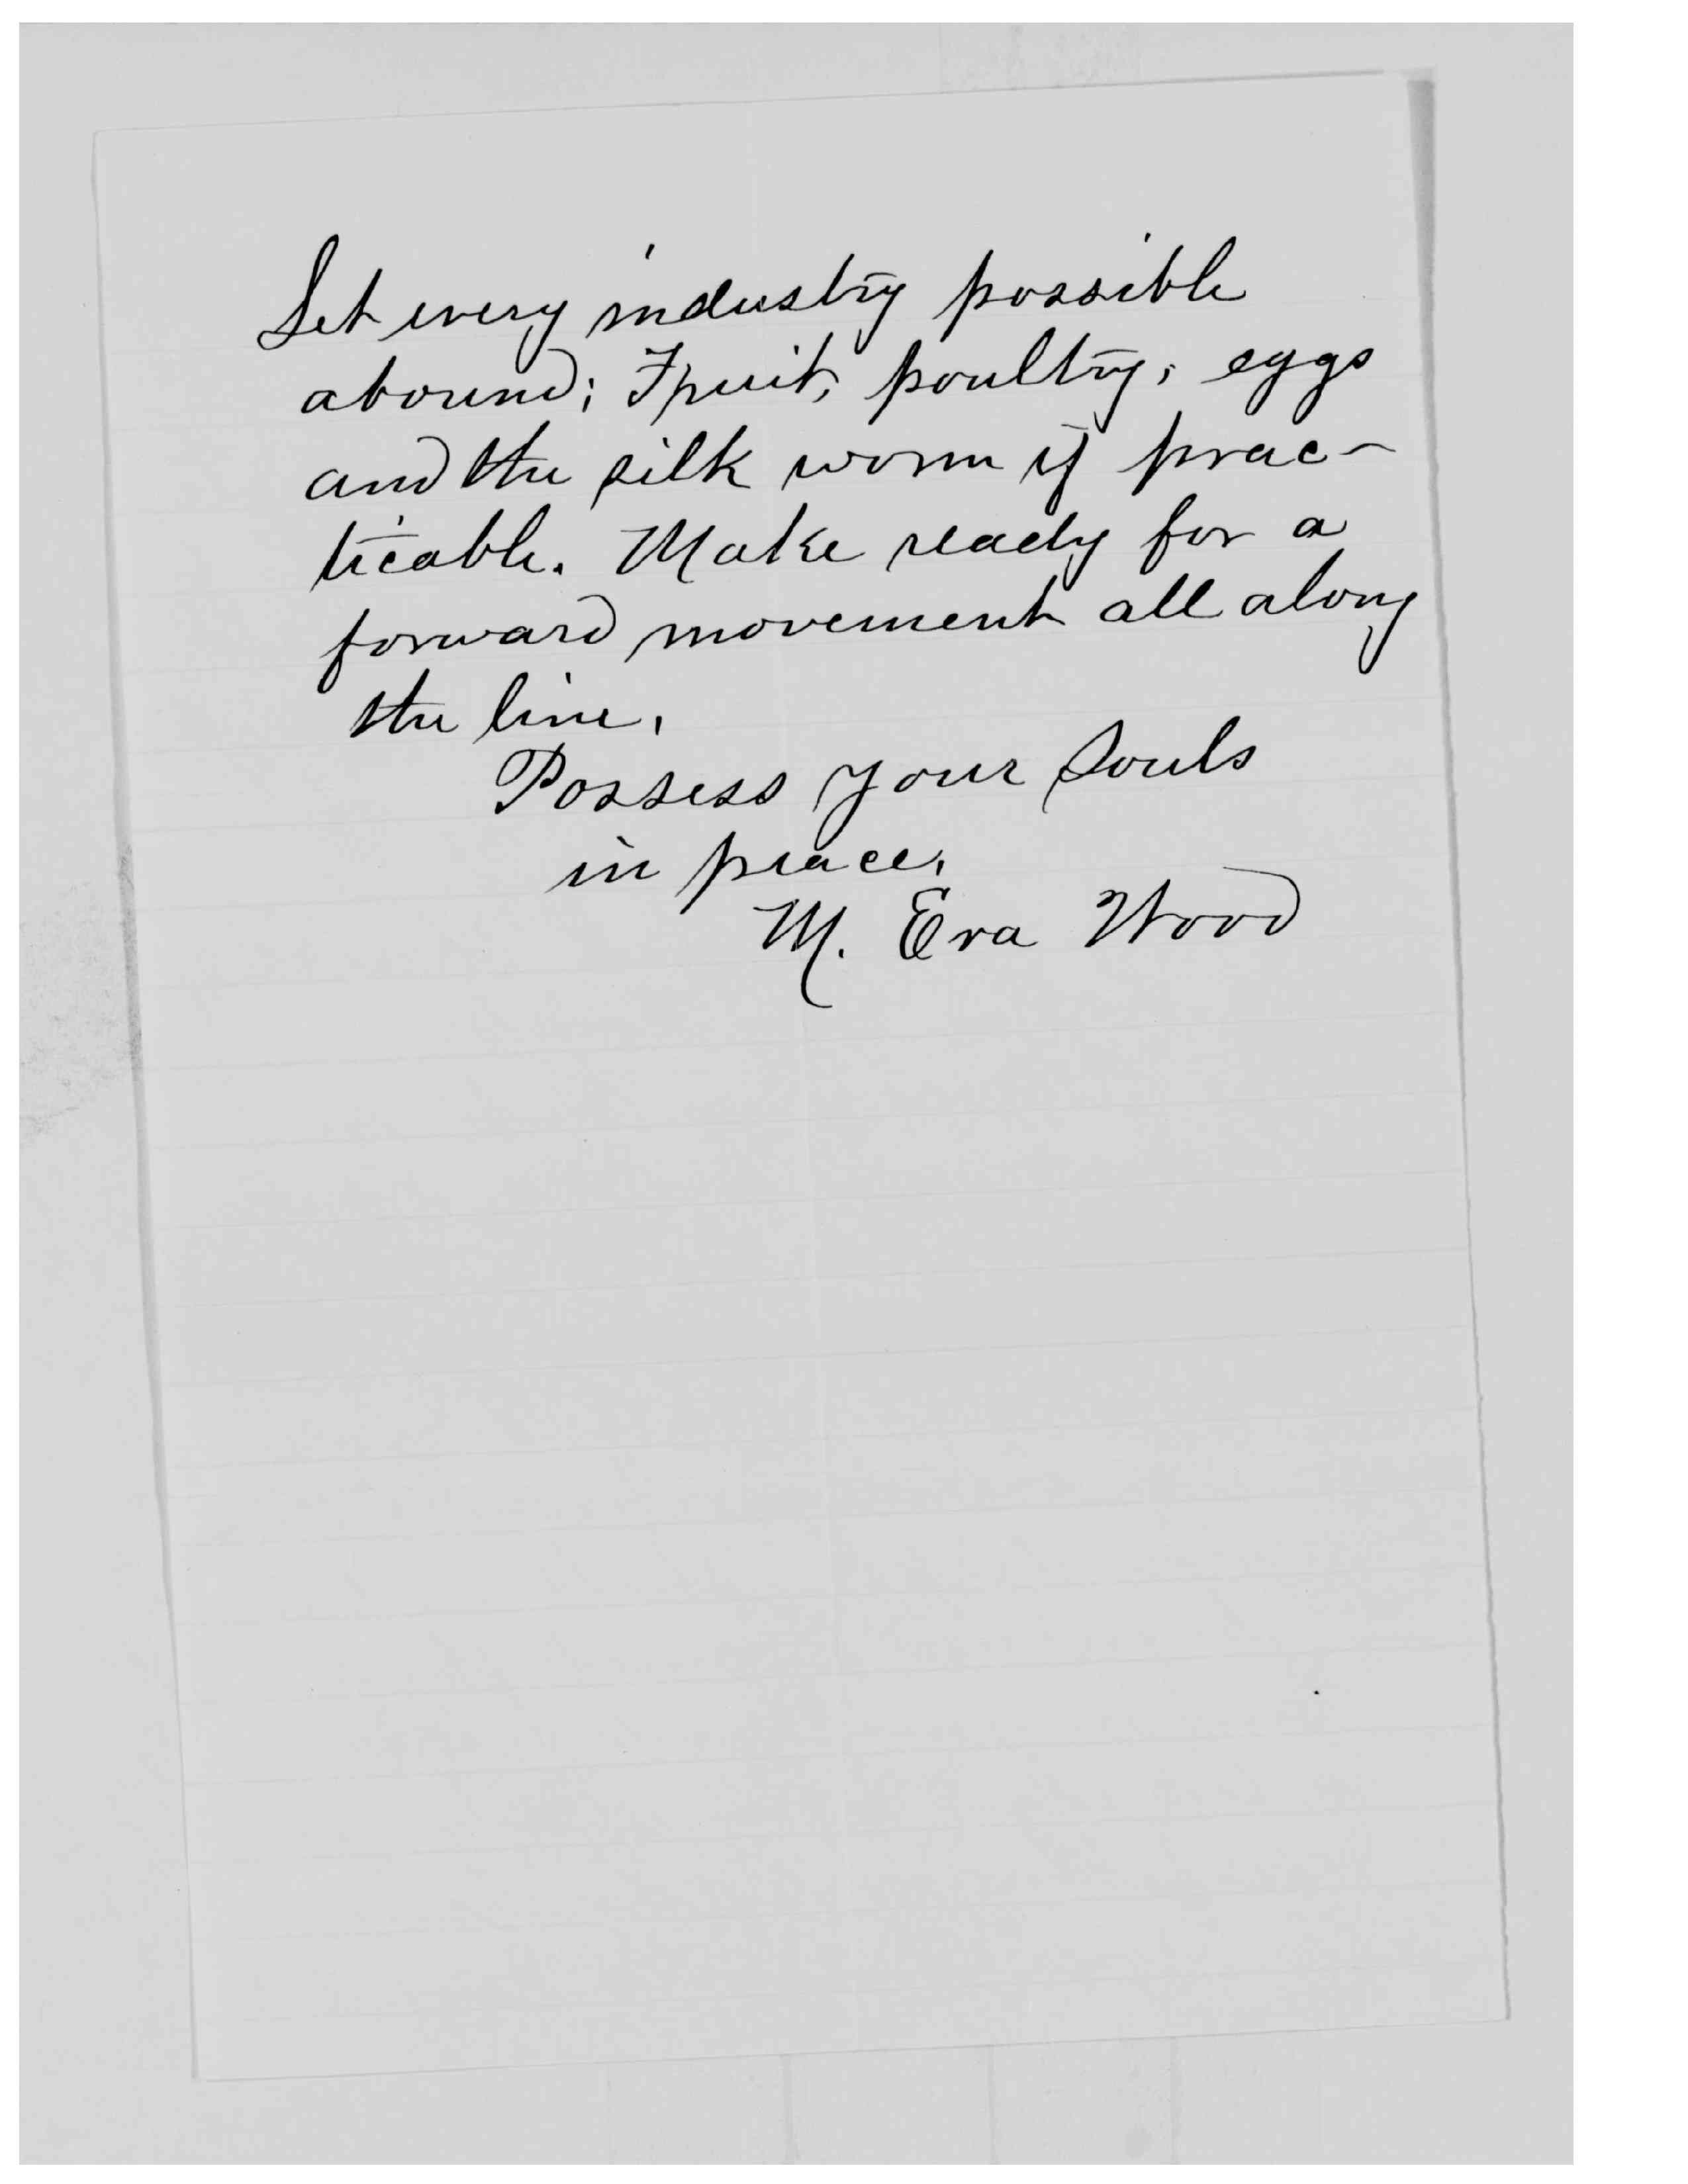 Let every industry possible
abound; Fruit, poultry, eggs
and the silk worm if prac-
ticable. Make ready for a
forward movement all along
the line.
Possess your Souls
in peace.
M. Eva Wood